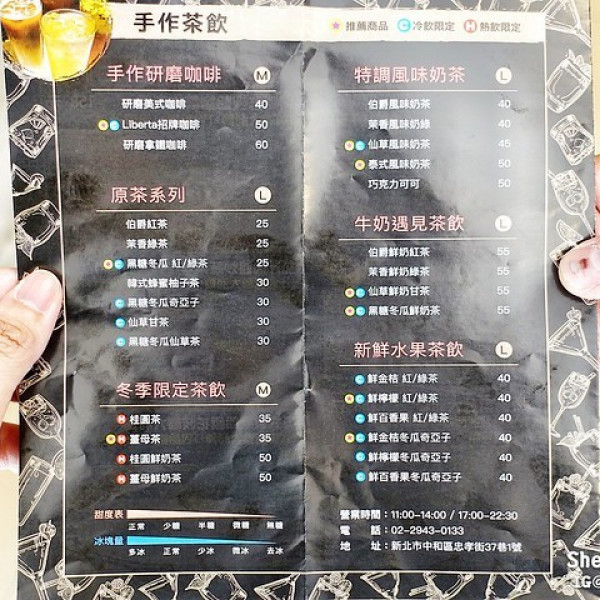 手作茶飲
★推薦商品 C冷飲限定 H熱飲限定
手作研磨咖啡 M
研磨美式咖啡 40
C Liberta招牌咖啡 50
研磨拿鐵咖啡 60
原茶系列 L
伯爵紅茶 25
茉香綠茶 25
C 黑糖冬瓜 紅/綠茶 25
韓式蜂蜜柚子茶 30
C 黑糖冬瓜奇亞子 30
C 仙草甘茶 30
C 黑糖冬瓜仙草茶 35
冬季限定茶飲 M
H 桂圓茶 35
H 薑母茶 35
H 桂圓鮮奶茶 50
H 薑母鮮奶茶 50
甜度表
正常 少糖 半糖 微糖 無糖
冰塊量
多冰 正常 少冰 微冰 去冰
特調風味奶茶 L
伯爵風味奶茶 40
茉香風味奶綠 40
C 仙草風味奶茶 45
泰式風味奶茶 50
巧克力可可 50
牛奶遇見茶飲 L
伯爵鮮奶紅茶 55
茉香鮮奶綠茶 55
C 仙草鮮奶甘茶 55
C 黑糖冬瓜鮮奶茶 55
新鮮水果茶飲 L
C 鮮金桔 紅/綠茶 40
C 鮮檸檬 紅/綠茶 40
C 鮮百香果 紅/綠茶 40
C 鮮金桔冬瓜奇亞子 40
C 鮮檸檬冬瓜奇亞子 40
C 鮮百香果冬瓜奇亞子 40
營業時間：11:00-14:00 / 17:00-22:30
電 話：02-2943-0133
地 址：新北市中和區忠孝街37巷1號
She
IG@